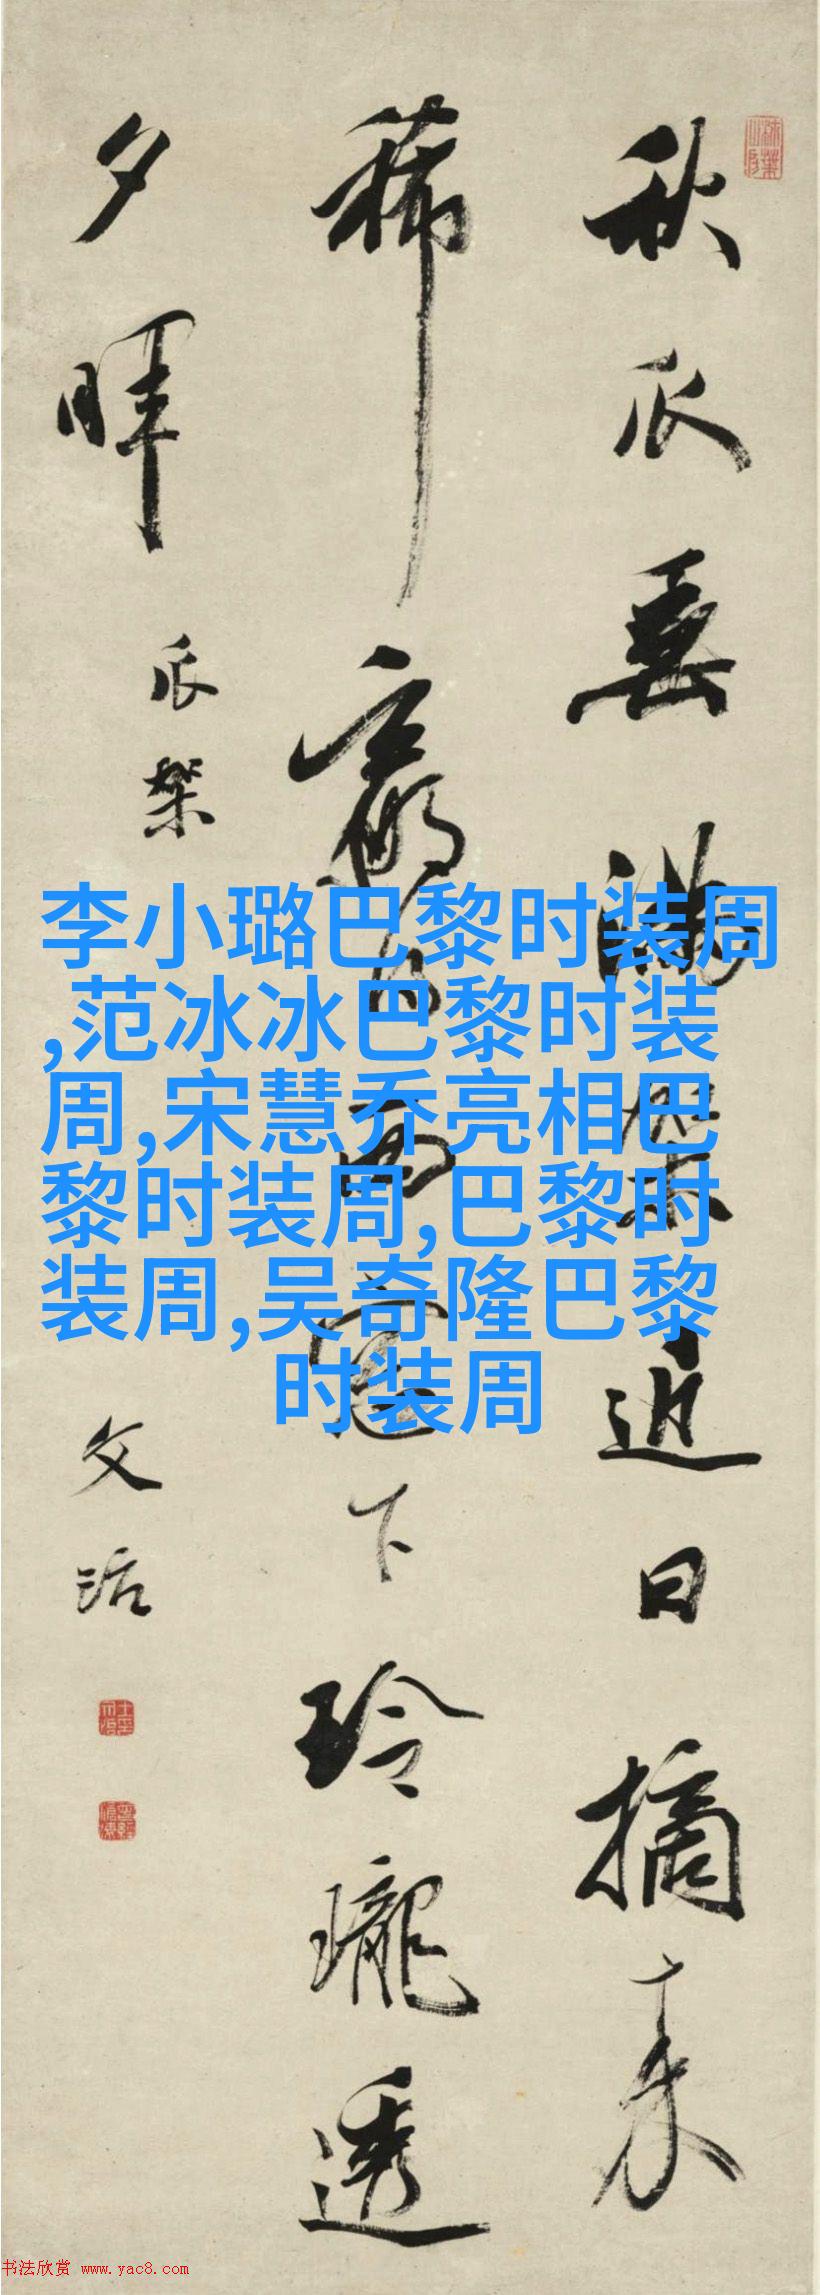 秋瓜垂满架近日摘来
稀赢得西窗下玲瓏透
夕晖
瓜架
文治
李小璐巴黎时装周
,范冰冰巴黎时装
周,宋慧乔亮相巴
黎时装周,巴黎时
装周,吴奇隆巴黎
时装周
书法欣赏 www.yac8.com